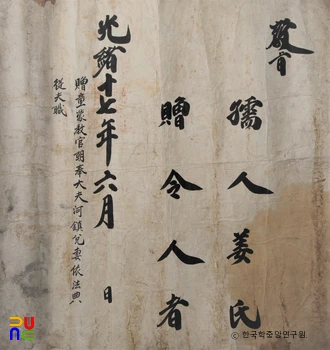 敎旨
孺人姜氏
贈令人者
光緖十七年六月 日
贈童蒙敎官朝奉大夫河鎭兌妻依法典
從夫職
PUNC
ⓒ 한국학중앙연구원